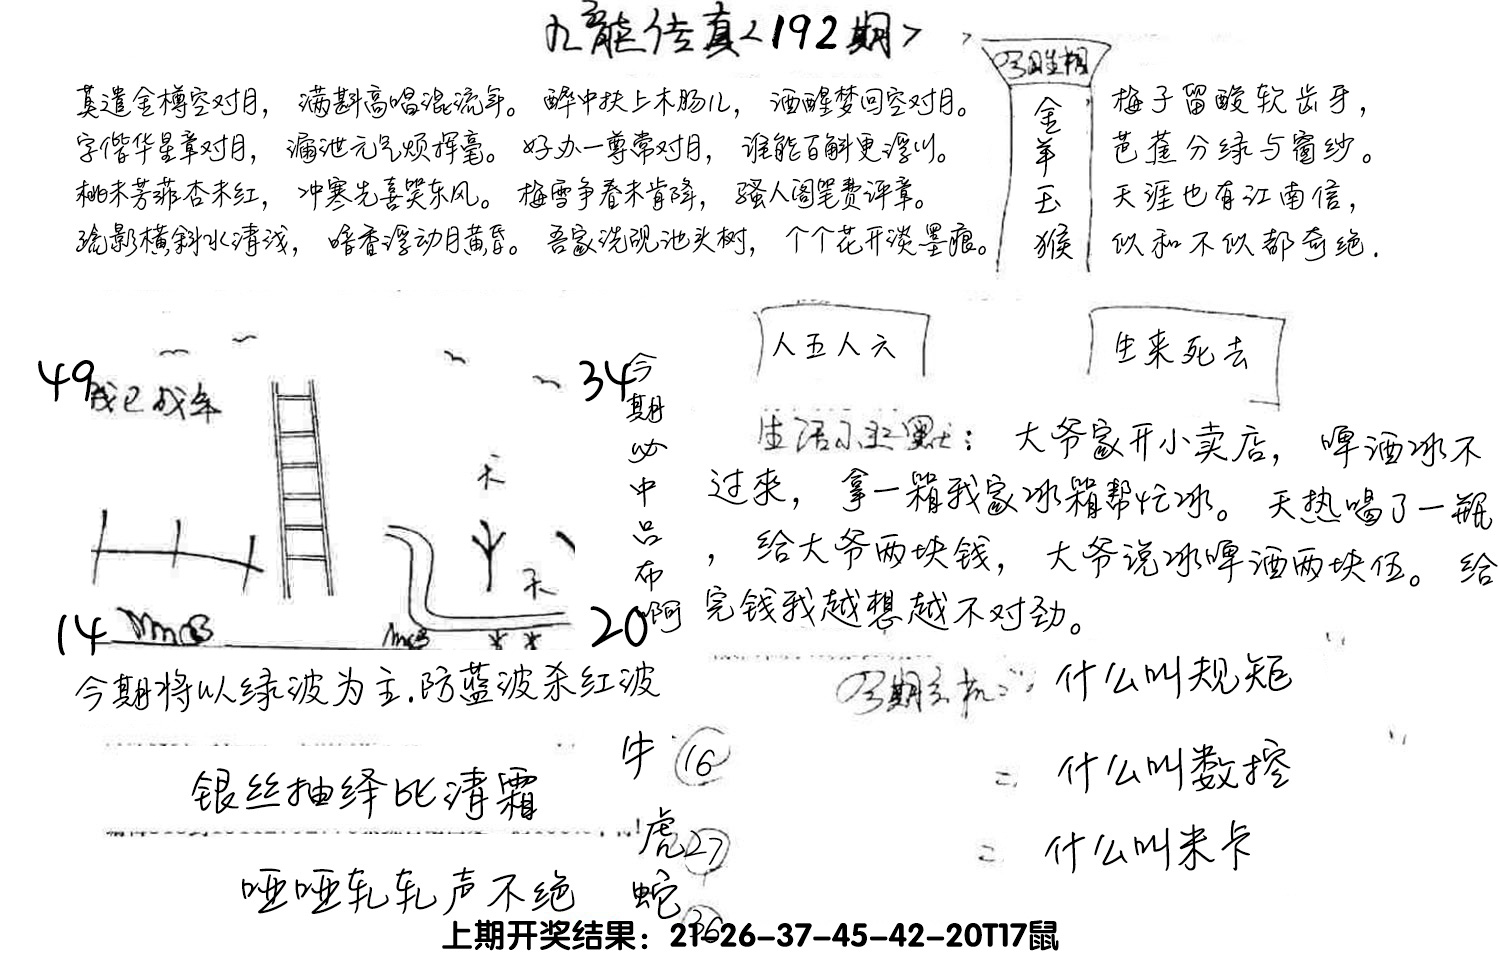 九龙传真<192期>
莫遣金樽空对月，满斟高唱混流年。醉中扶上木肠儿，酒醒梦回空对月。
字偕华星章对月，漏泄元气烦挥毫。好办一尊常对月，谁能百斛更浮川。
桃未芳菲杏未红，冲寒先喜笑东风。梅雪争春未肯降，骚人阁笔费评章。
疏影横斜水清浅，暗香浮动月黄昏。吾家洗砚池头树，个个花开淡墨痕。
今期生相
金
羊
玉
猴
梅子留酸软齿牙，
芭蕉分绿与窗纱。
天涯也有江南信，
似和不似都奇绝.
49
34
14
20
天
天
今
期
必
中
吕
布
啊
人五人六
生来死去
生活小幽默：大爷家开小卖店，啤酒冰不
过来，拿一箱我家冰箱帮忙冰。天热喝了一瓶
，给大爷两块钱，大爷说冰啤酒两块伍。给
完钱我越想越不对劲。
今期将以绿波为主.防蓝波杀红波
银丝抽绎比清霜
哑哑轧轧声不绝
牛 16
虎 27
蛇 36
今期玄机一：什么叫规矩
二 什么叫数控
二 什么叫米卡
上期开奖结果：21-26-37-45-42-20T17鼠